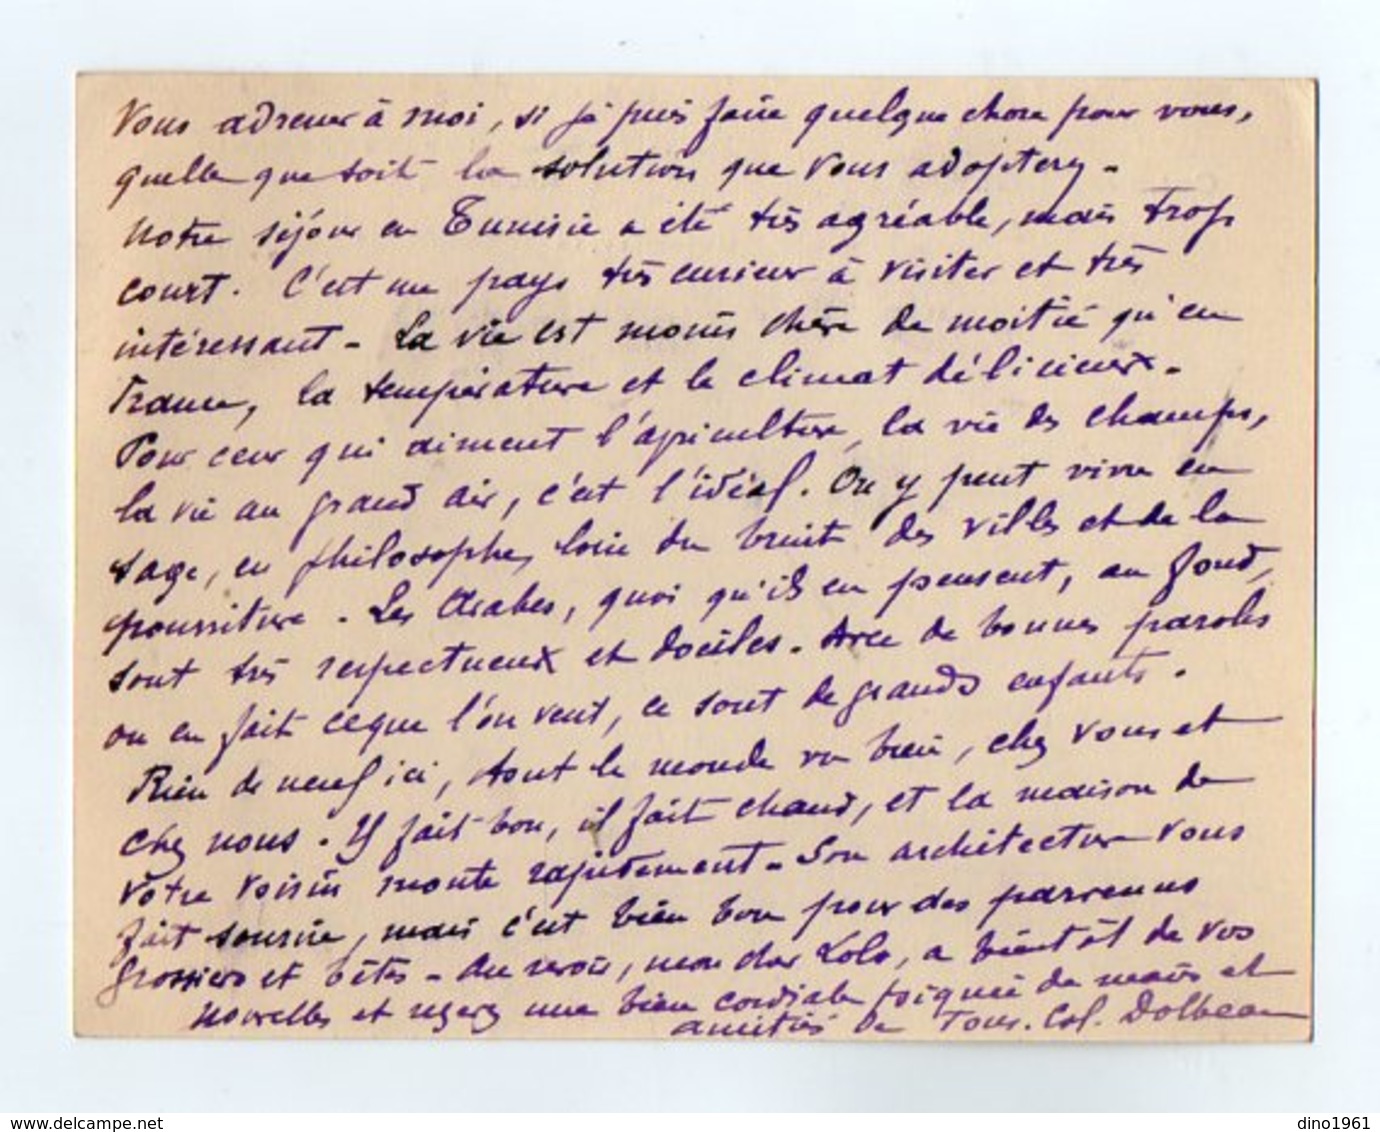 Vous adresser à moi, si je puis faire quelque chose pour vous,
quelle que soit la solution que vous adopterez -
Notre séjour en Tunisie a été très agréable, mais trop
court. C'est un pays très curieux à visiter et très
intéressant - La vie est moins chère de moitié qu'en
France, la température et le climat délicieux -
Pour ceux qui aiment l'apiculture, la vie des champs,
la vie au grand air, c'est l'idéal. On y peut vivre en
sage, en philosophe, loin du bruit des villes et de la
pourriture. Les Arabes, quoi qu'ils en pensent, au fond,
sont très respectueux et dociles. Avec de bonnes paroles
on en fait ce que l'on veut, ce sont de grands enfants.
Rien de neuf ici, tout le monde va bien, chez vous et
chez nous. Il fait bon, il fait chaud, et la maison de
votre voisin monte rapidement - Son architecture vous
fait sourire, mais c'est bien bon pour des parvenus
grossiers et bêtes - Au revoir, mon cher Lolo, a bientôt de vos
nouvelles et reçevez une bien cordiale poignée de mains et
amitiés de Tous. Col. Dolbeau
www.delcampe.net
dino1961